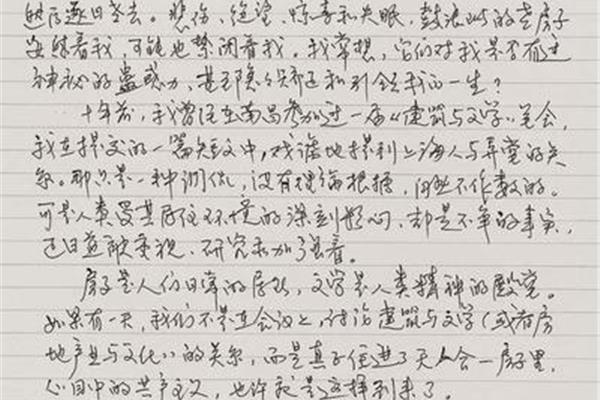 然后逐日老去。悲伤、绝望、惊喜和失眠，鼓浪屿的老房子
安慰着我，可能也禁闭着我。我常想，它们对我是否有过
神秘的蛊惑力，甚至隐隐矫正和引领我的一生？
十年前，我曾经在南昌参加过一届《建筑与文学》笔会，
我在提交的一篇短文中，戏谑地提到上海人与弄堂的关
系。那只是一种调侃，没有理论根据，自然不作数的。
可是人类受其居住环境的深刻影响，却是不争的事实，
已日益被重视、研究和加了强着。
房子是人们日常的居所，文学是人类精神的殿堂。
如果有一天，我们不是在会议上，讨论建筑与文学（或者房
地产业与文化）的关系，而是真正住进了天人合一房子里，
心目中的共产主义，也许就是这样到来了。